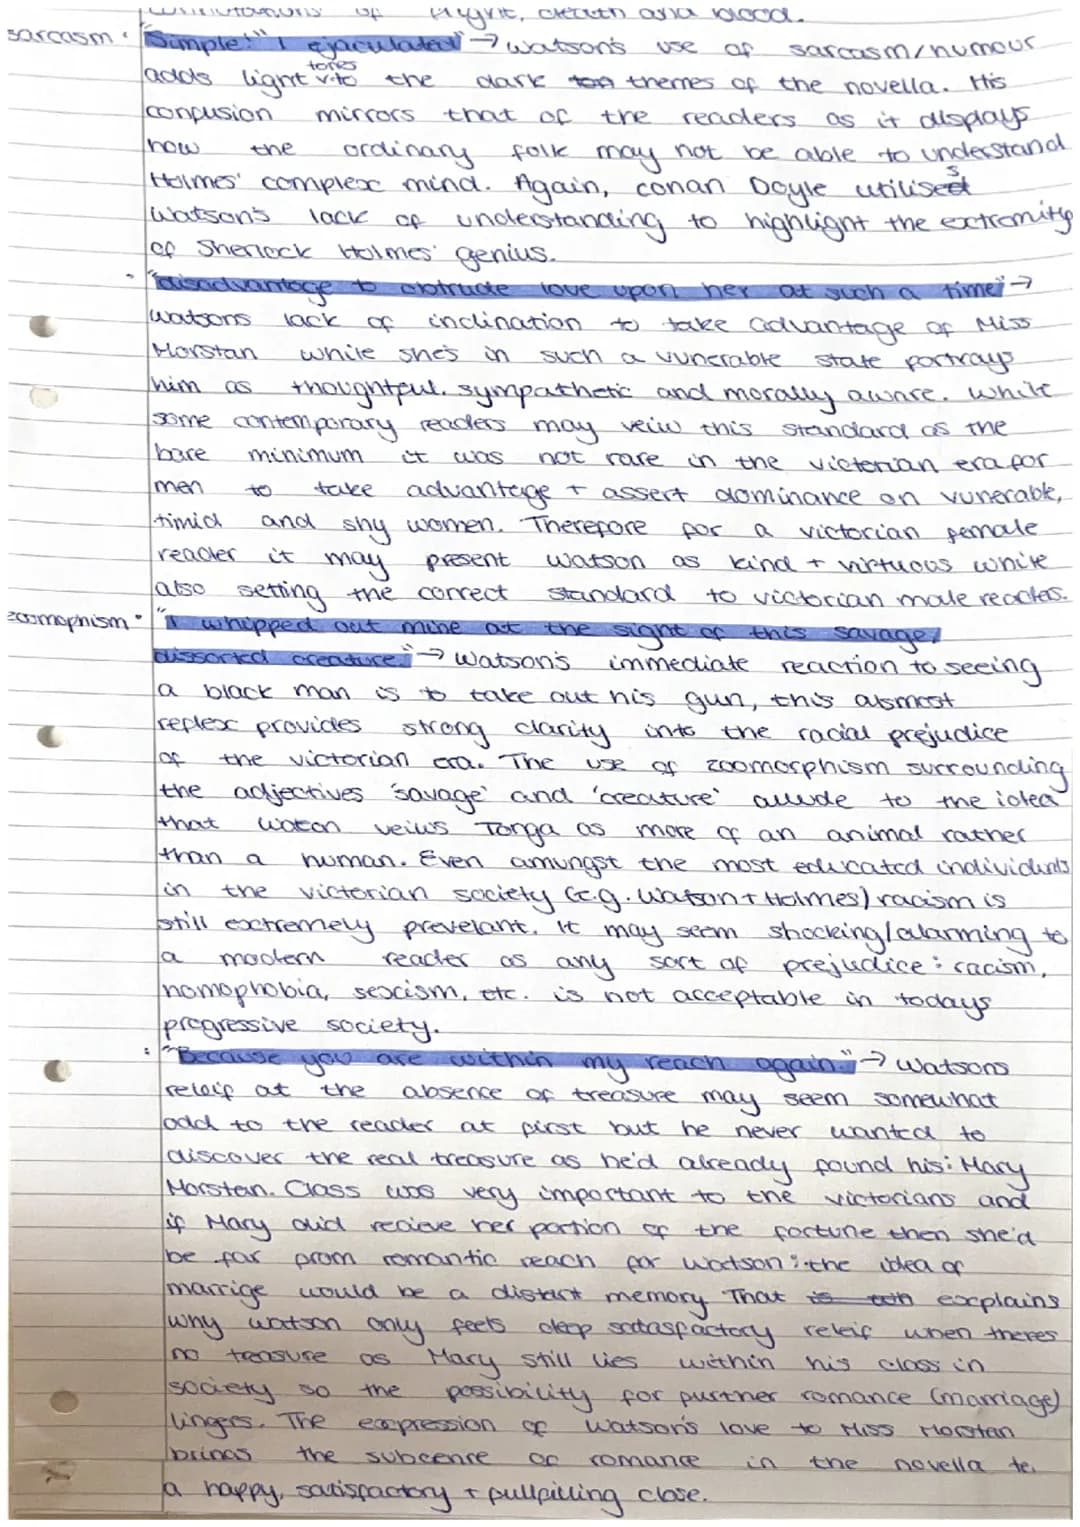 connotations of flight, death and blood.
sarcasm • "Simple!" I ejaculated" → Watson's use of sarcasm/humour
adds light tones to the dark themes of the novella. His
confusion mirrors that of the readers as it displays
how the ordinary folk may not be able to understand
Holmes' complex mind. Again, conan Doyle utilises
Watson's lack of understanding to highlight the extremity
of Sherlock Holmes' genius.
• "disadvantage to obtrude love upon her at such a time" →
Watsons lack of inclination to take advantage of Miss
Morstan while she's in such a vunerable state portrays
him as thoughtful, sympathetic and morally aware. While
some contemporary readers may veiw this standard as the
bare minimum it was not rare in the victorian era for
men to take advantage + assert dominance on vunerable,
timid and shy women. Therefore for a victorian female
reader it may present Watson as kind + virtuous while
also setting the correct standard to victorian male readers.
zoomophism • "I whipped out mine at the sight of this savage,
dissorted creature." → Watson's immediate reaction to seeing
a black man is to take out his gun, this almost
reflex provides strong clarity into the racial prejudice
of the victorian era. The use of zoomorphism surrounding
the adjectives 'savage' and 'creature' allude to the idea
that watson veiws Tonga as more of an animal rather
than a human. Even amungst the most educated individuals
in the victorian society (e.g. Watson + Holmes) racism is
still extremely prevelant. It may seem shocking/alarming to
a modern reader as any sort of prejudice: racism,
homophobia, sexism, etc. is not acceptable in todays
progressive society.
: "Because you are within my reach again." → Watsons
releif at the absence of treasure may seem somewhat
odd to the reader at first but he never wanted to
discover the real treasure as he'd already found his: Mary
Morstan. Class was very important to the victorians and
if Mary did recieve her portion of the fortune then she'd
be far from romantic reach for Watson; the idea of
marrige would be a distant memory That explains
why watson only feels deep satasfactory releif when theres
no treasure as Mary still lies within his class in
society so the possibility for further romance (marriage)
lingers. The expression of Watson's love to Miss Morstan
brings the subcence of romance in the novella to
a happy, satisfactory + fullfilling close.